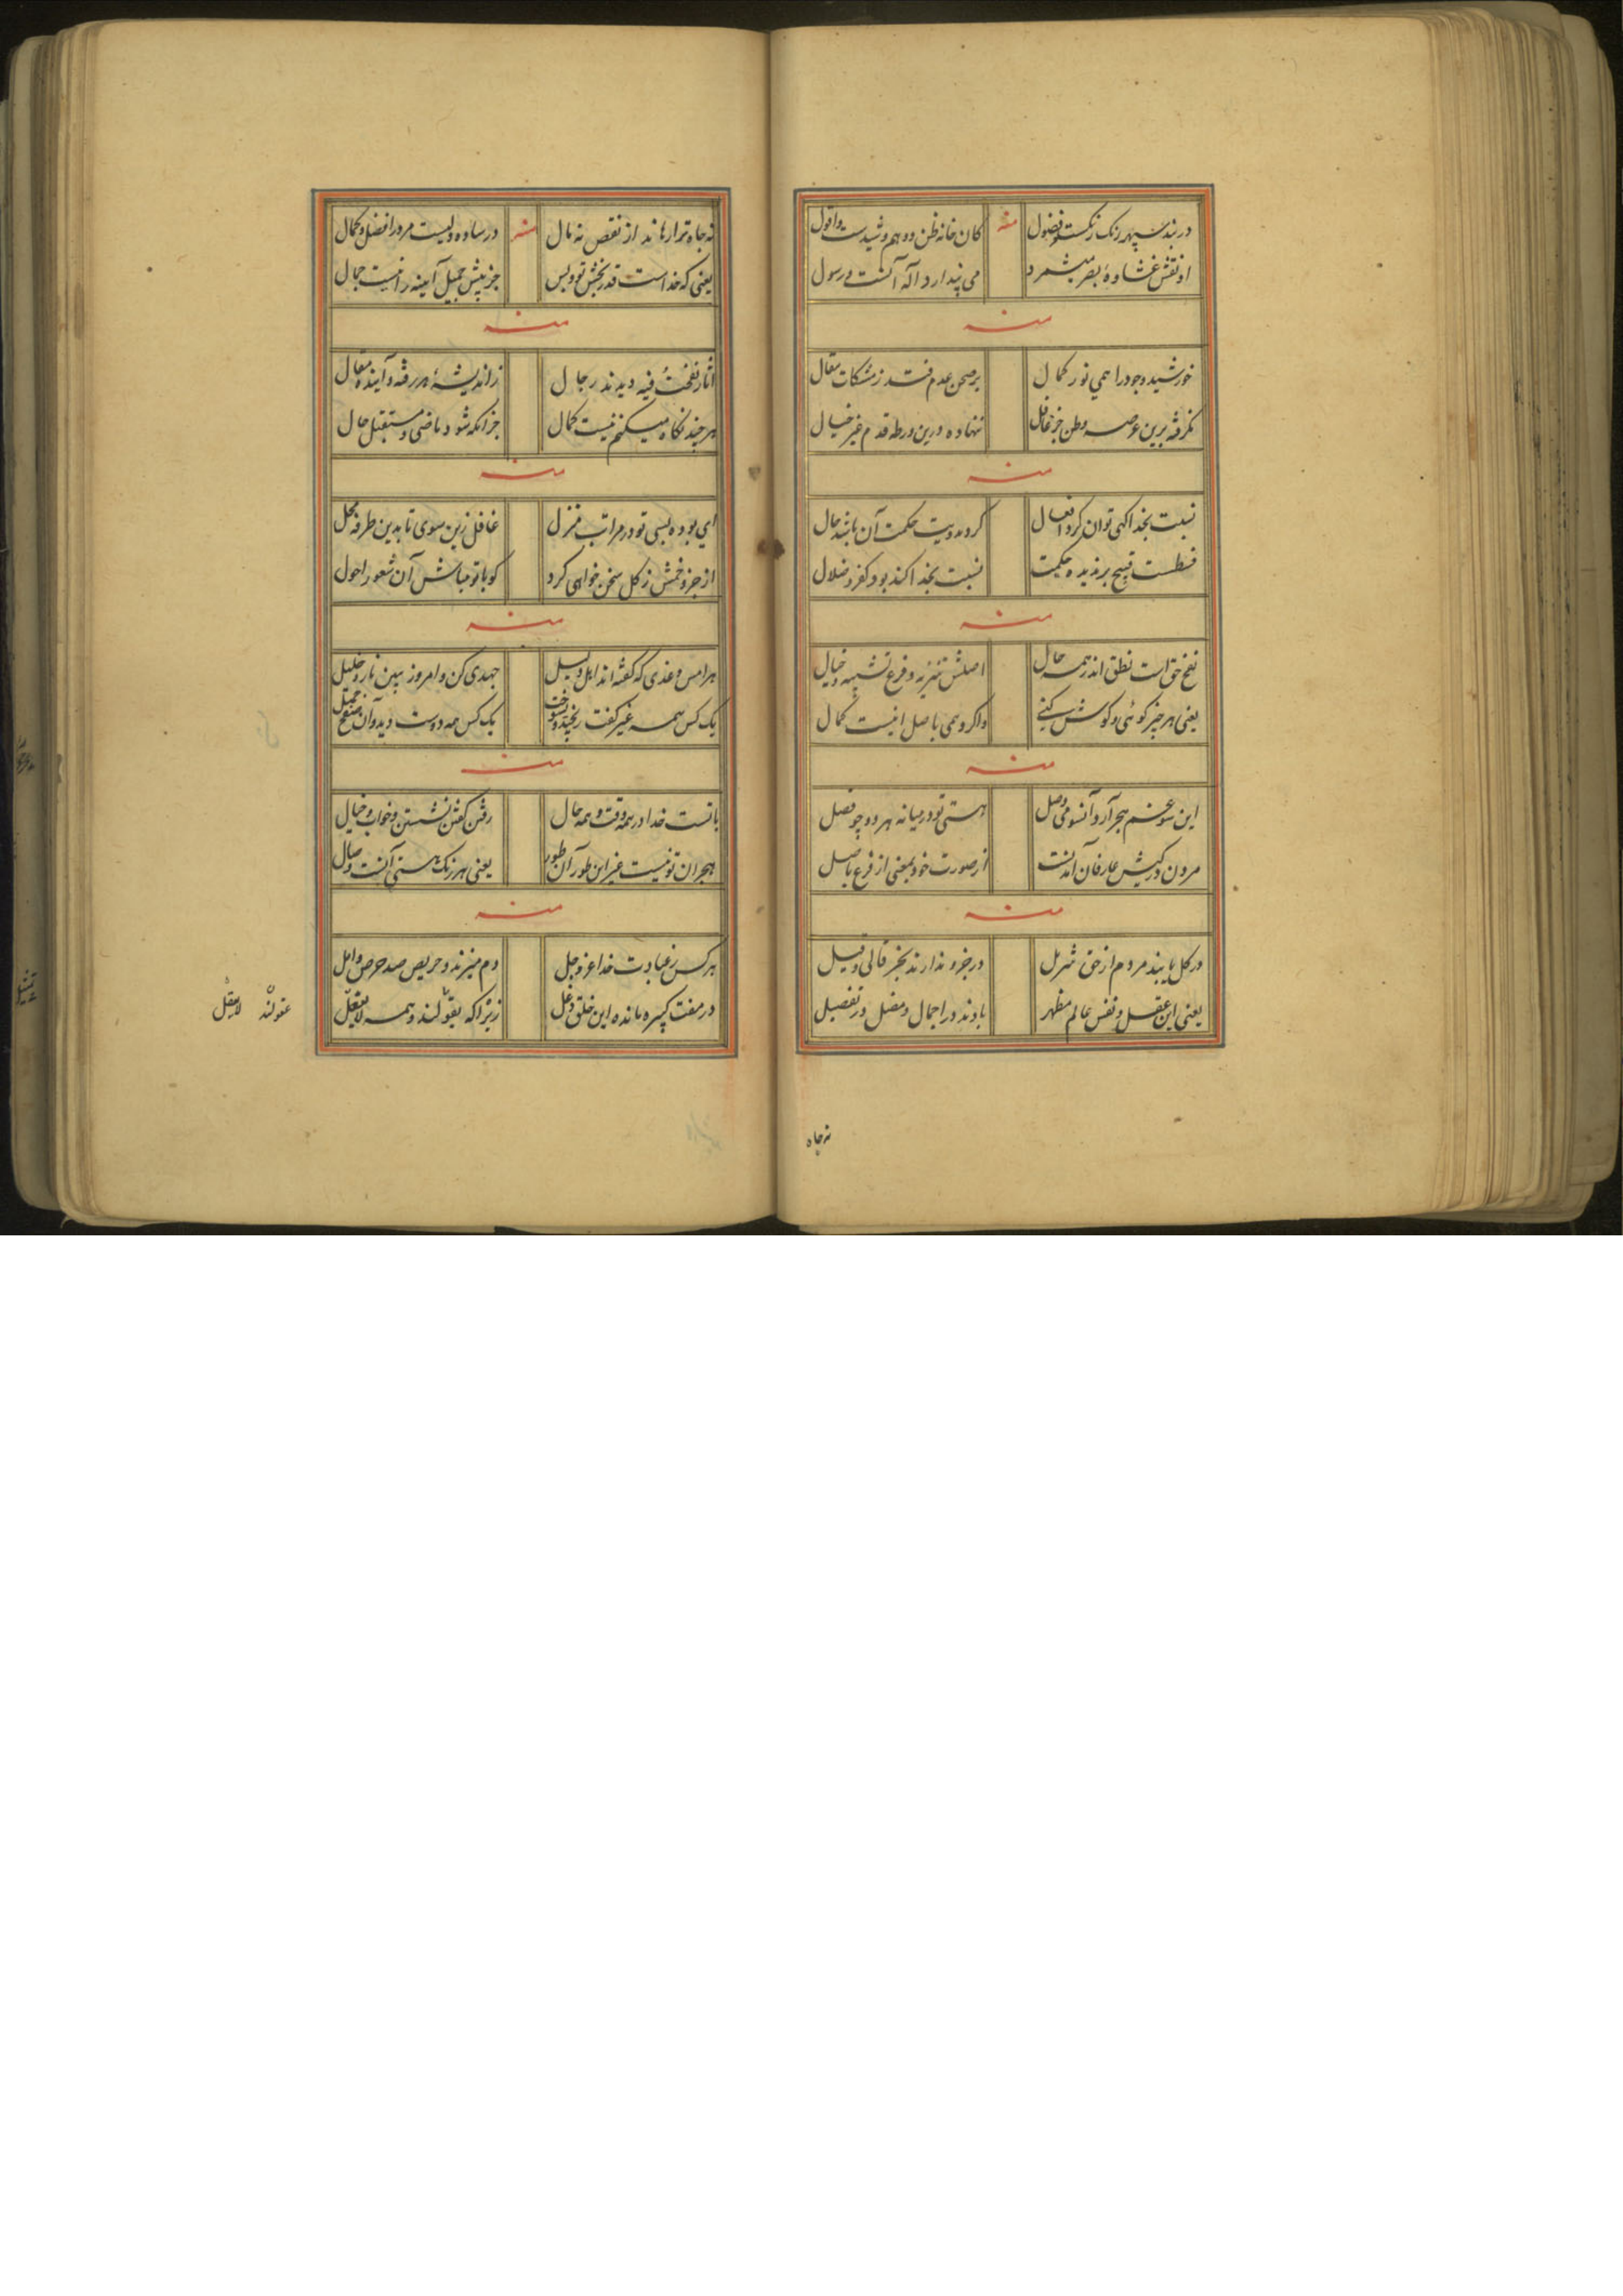 در بند سپهر رنگ رنگست فضول منه کان خانه ظن و وهم و شیدست و افول
او نقش غشاوهٔ بصر میشمرد می پندارد آله آنست رسول
منه
خورشید وجود را همی نور کمال بر صحن عدم فتد ز مشکات مقال
نگرفته برین عرصه وطن جز غافل ننهاده درین ورطه قدم غیر خیال
منه
نسبت بخدا کهی توان کرد افعال کز وی رویت حکمت آن باشد حال
قسطست قبیح بر ندیده حکمت نسبت بخدا کند بود کفر و ضلال
منه
نفخ حق است نطق اندر همه حال اصلش تنزیه و فرع تشبیه و خیال
یعنی هر چیز کوئی و کوش کنی واکر وهمی باصل انیست کمال
منه
این سو غم هجر آرد و آنسو می وصل هستی تو در میانه هر دو چو فصل
مردن در کیش عارفان آمدنست از صورت خود بمعنی از فرع باصل
منه
در کل یابند مردم از حق تنزیل در جزو ندارند بجز قالی و قیل
یعنی این عقل و نفس عالم مظهر یادند در اجمال و مفصل در تفصیل
نه جاه
نه جاه ترا رهاند از نقص نه مال منه در ساده ولیست مرد را فضل و کمال
یعنی که خداست قدر بخش تو و بس جز پیش جمیل آینه را نیست جمال
منه
آثار نفخت فیه دیدند رجال ز اندیشهٔ هر رفته و آینده مقال
هر چند نکاه میکنم نیست کمال جز آنکه شود ماضی و مستقبل حال
منه
ای بوده بسی تو در مراتب منزل غافل زین سوی تا بدین طرفه محل
از جزو خمش ز کل سخن خواهی کرد کو با تو مباش آن شعور اول
منه
هر امس و غدی که گفته اند اهل سبیل جهدی کن و امروز ببین نار خلیل
یک کس همه غیر کفت رنجید و سوخت یک کس همه دوست دید و آن صنع جمیل
منه
با تست خدا در همه وقت و همه حال رفتن گفتن نشستن و خواب و خیال
هجران تو نیست غیر این طور آن طور یعنی هر رنگ هستی آنست وصال
منه
هر کس ز عبادت خدا عز و جل دم میزند و حریص صد حرص و امل
در مفت کیسه مانده این خلق دغل زیرا که بقولند و همه لایعقل
عقولند لایعقل